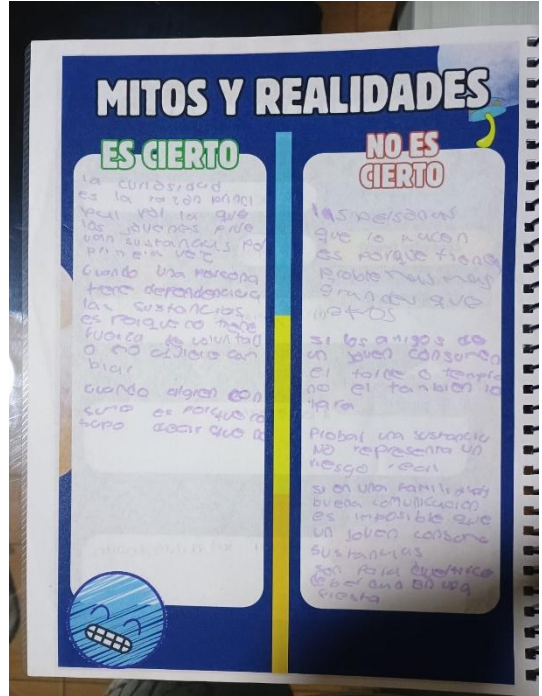 MITOS Y REALIDADES
ES CIERTO
la curiosidad
es la razón princi
pal por la que
los jovenes prue
van sustancias por
primera vez
cuando una persona
tiene dependencia a
las sustancias
es porque no tiene
fuerza de voluntad
o no quiere cam
biar
cuando alguien con
sume es porque no
supo decir que no
NO ES
CIERTO
las personas
que lo hacen
es porque tienen
problemas mas
grandes que
si los amigos de
un joven consumen
el tarde o tempra
no el tambien lo
hara
Probar una sustancia
NO representa un
riesgo real
si en una familia hay
buena comunicacion
es imposible que
un joven consuma
sustancias
son para
en una
fiesta